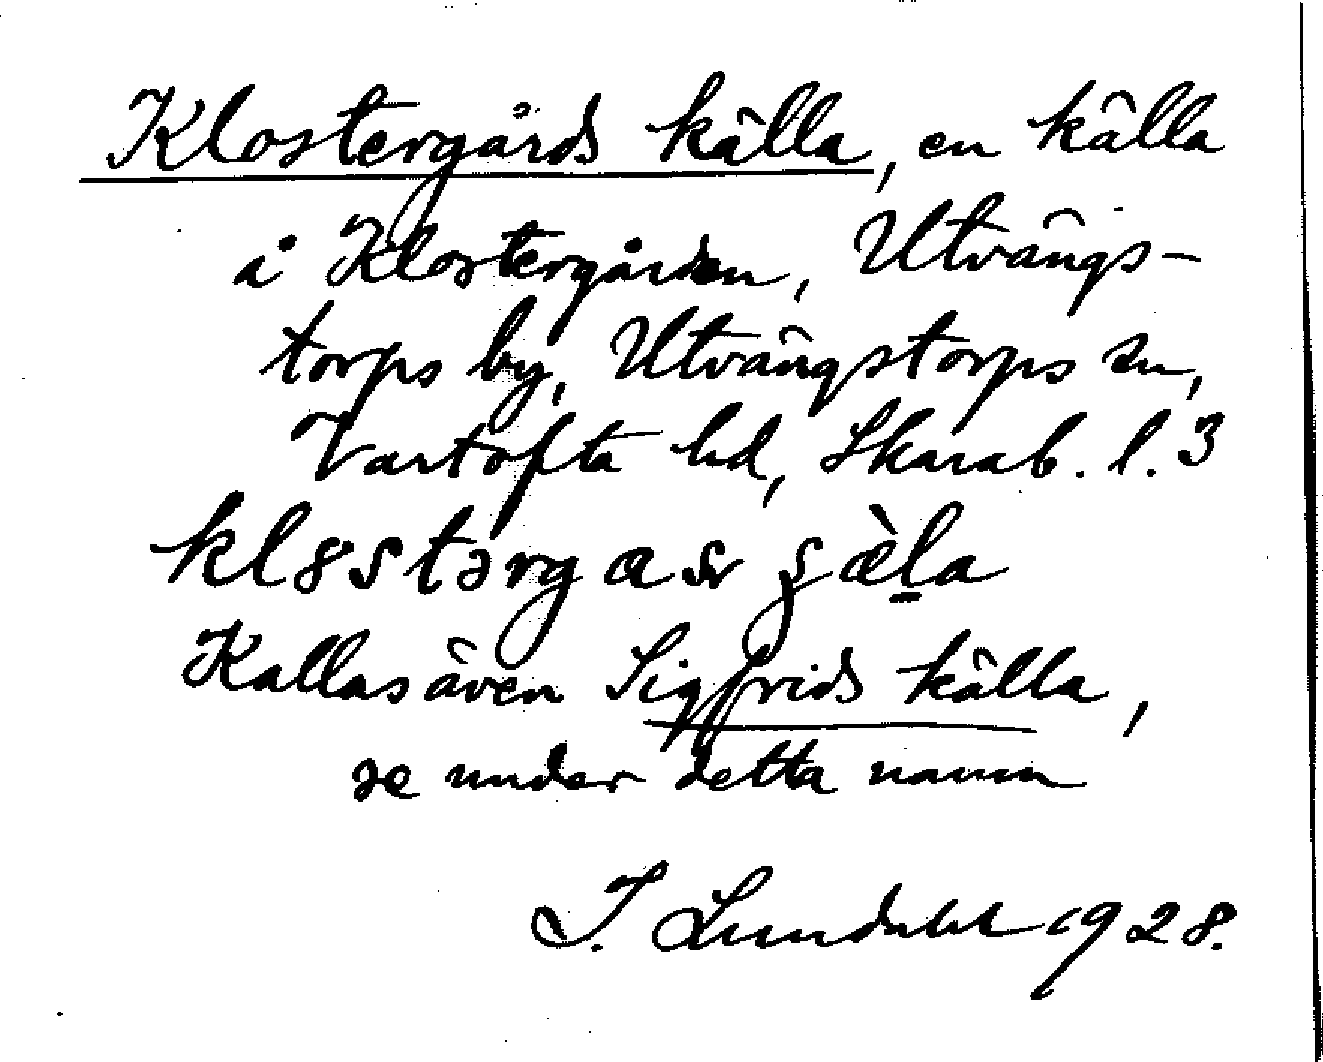 Klostergårds källa, en källa
å Klostergården, Utvängs-
torps by, Utvängstorps sn,
Vartofta hd, Skarab. l. 3
Kallas även Sigfrids källa,
se under detta namn
I. Lundahl 1928.